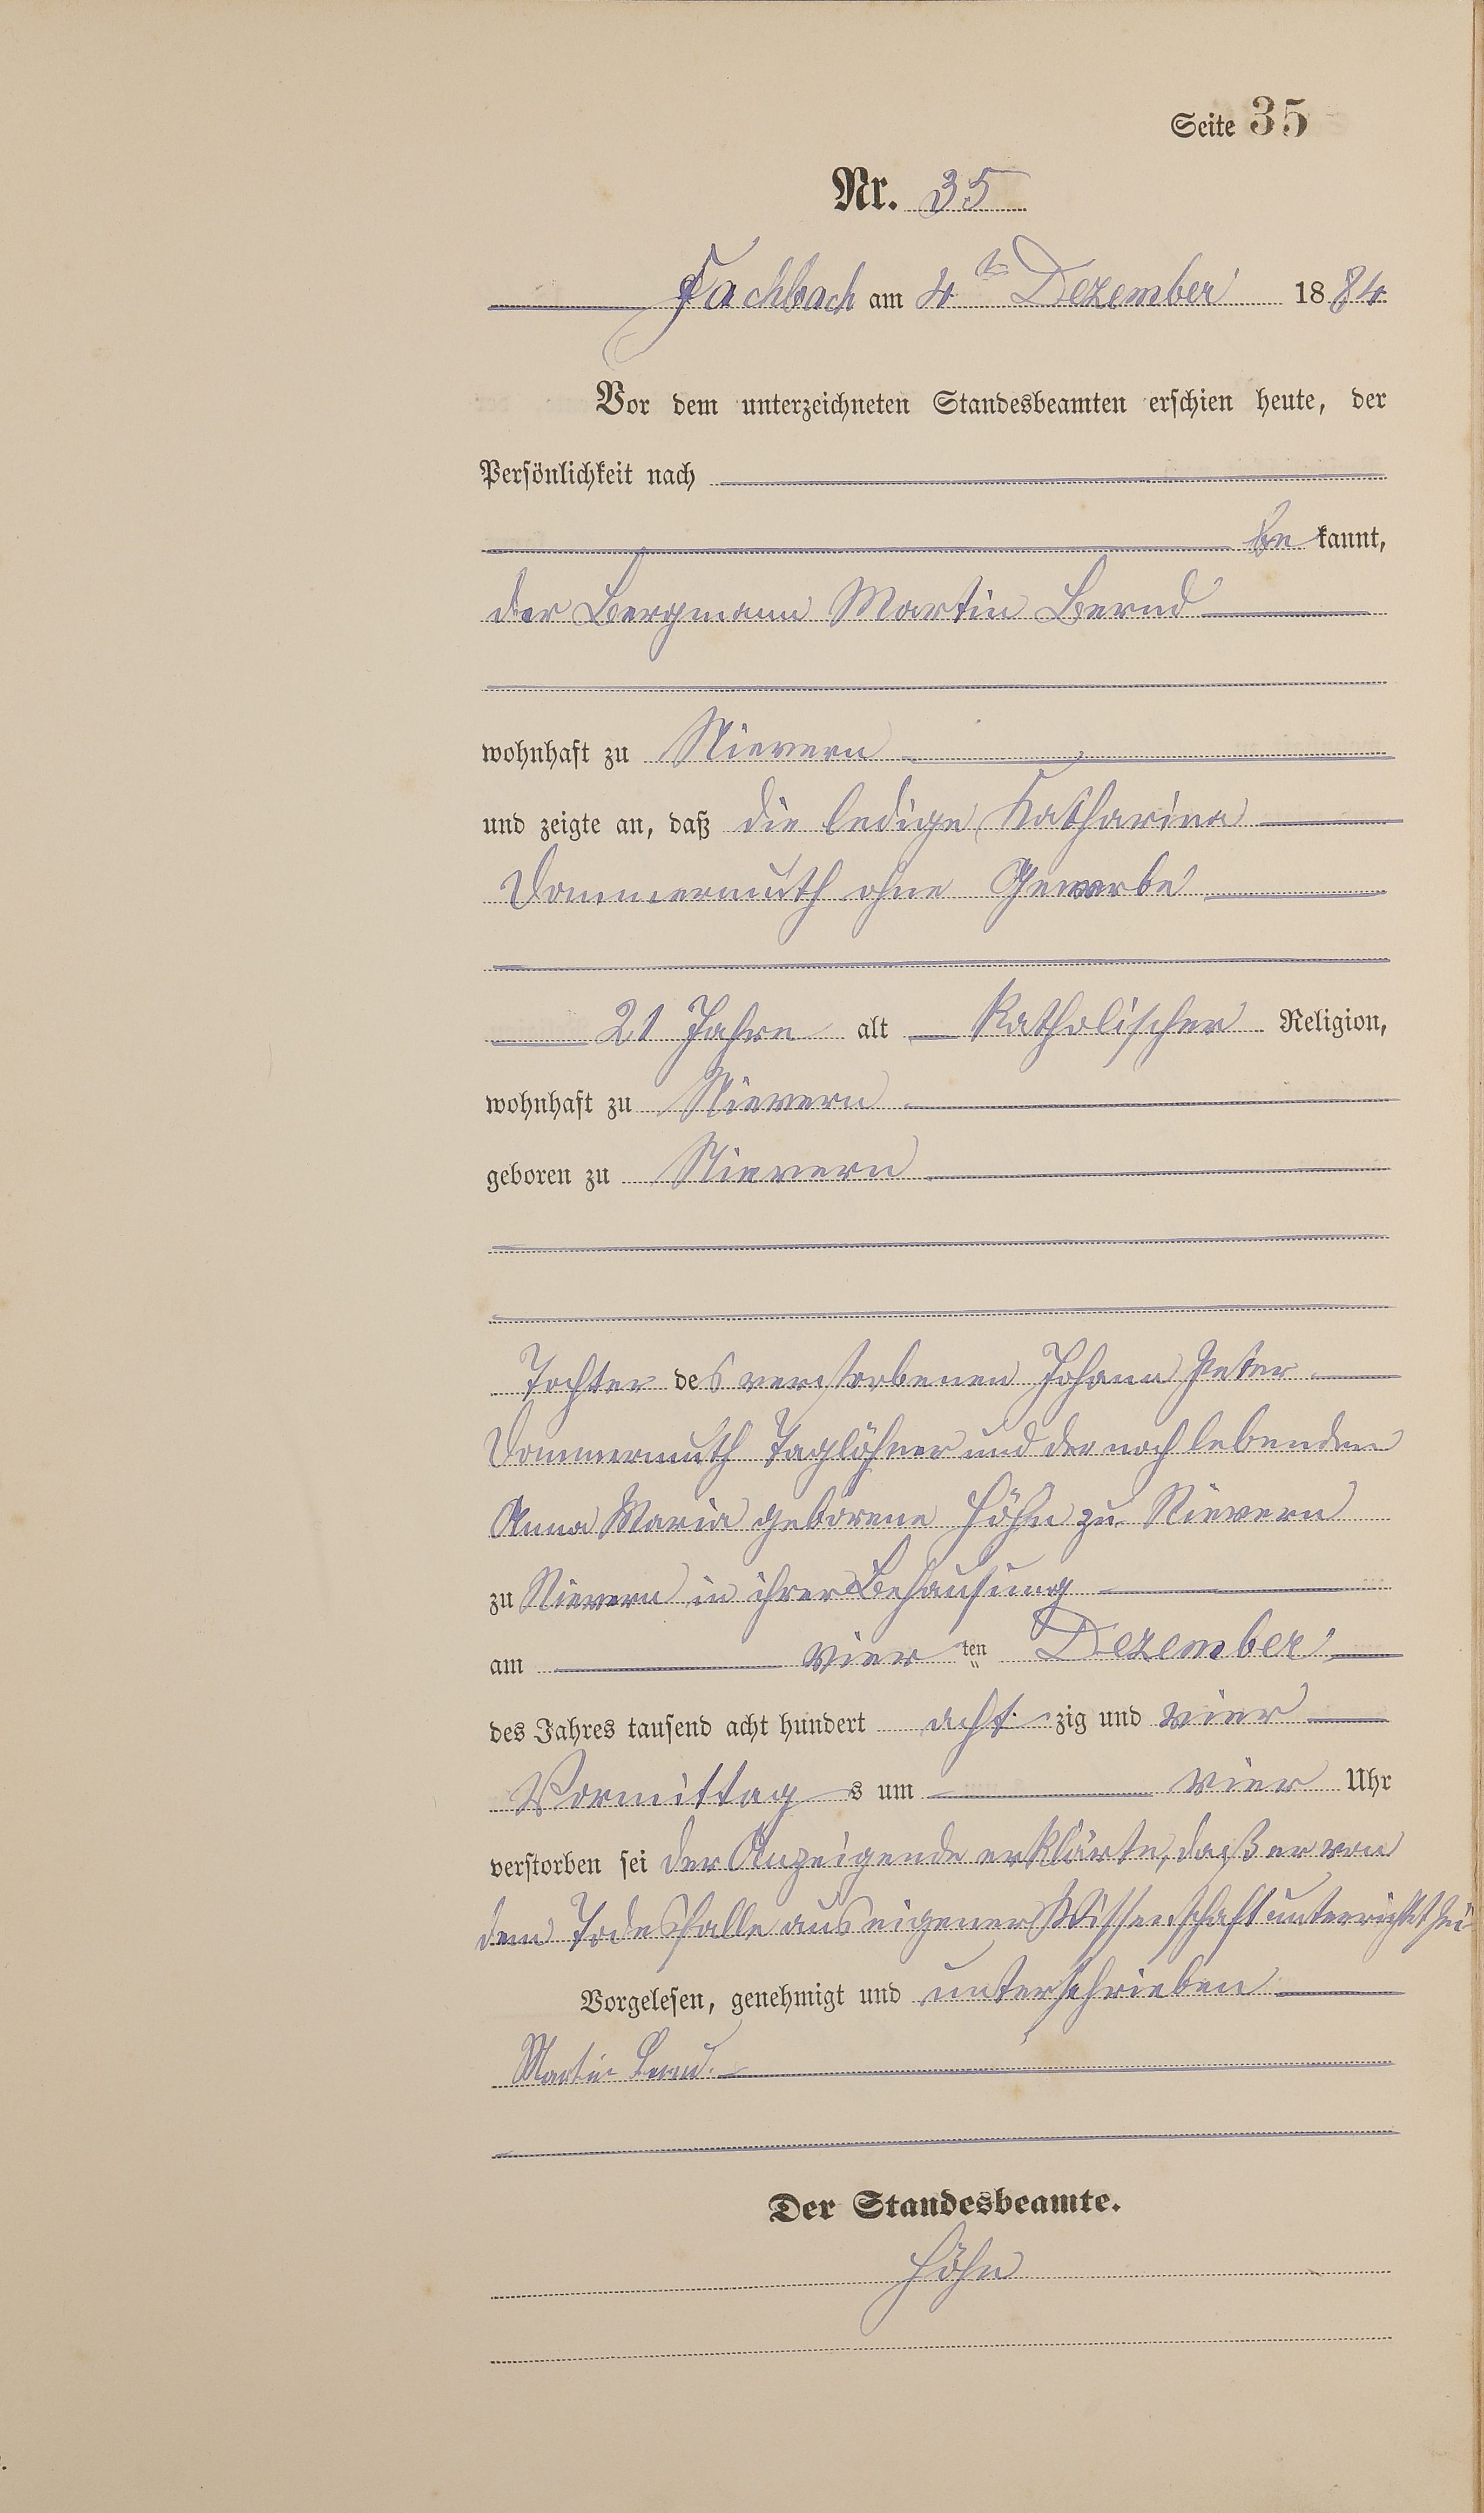 Seite 35
Nr. 35
Fachbach am 4ten Dezember 1884
Vor dem unterzeichneten Standesbeamten erschien heute, der
Persönlichkeit nach
bekannt,
der Bergmann Martin Bernd
wohnhaft zu Nievern
und zeigte an, daß die ledige Katharina
Dommermuth ohne Gewerbe
21 Jahre alt katholischer Religion,
wohnhaft zu Nievern
geboren zu Nievern
Tochter des verstorbenen Johann Peter
Dommermuth Taglöhner und der noch lebenden
Anna Maria geborene Höhn zu Nievern
zu Nievern in ihrer Behausung
am vierten Dezember
des Jahres tausend acht hundert achtzig und vier
Vormittags um vier Uhr
verstorben sei der Anzeigende erklärte, daß er von
dem Todesfalle aus eigener Wissenschaft unterrichtet sei
Vorgelesen, genehmigt und unterschrieben
Martin Bernd.
Der Standesbeamte.
Höhn